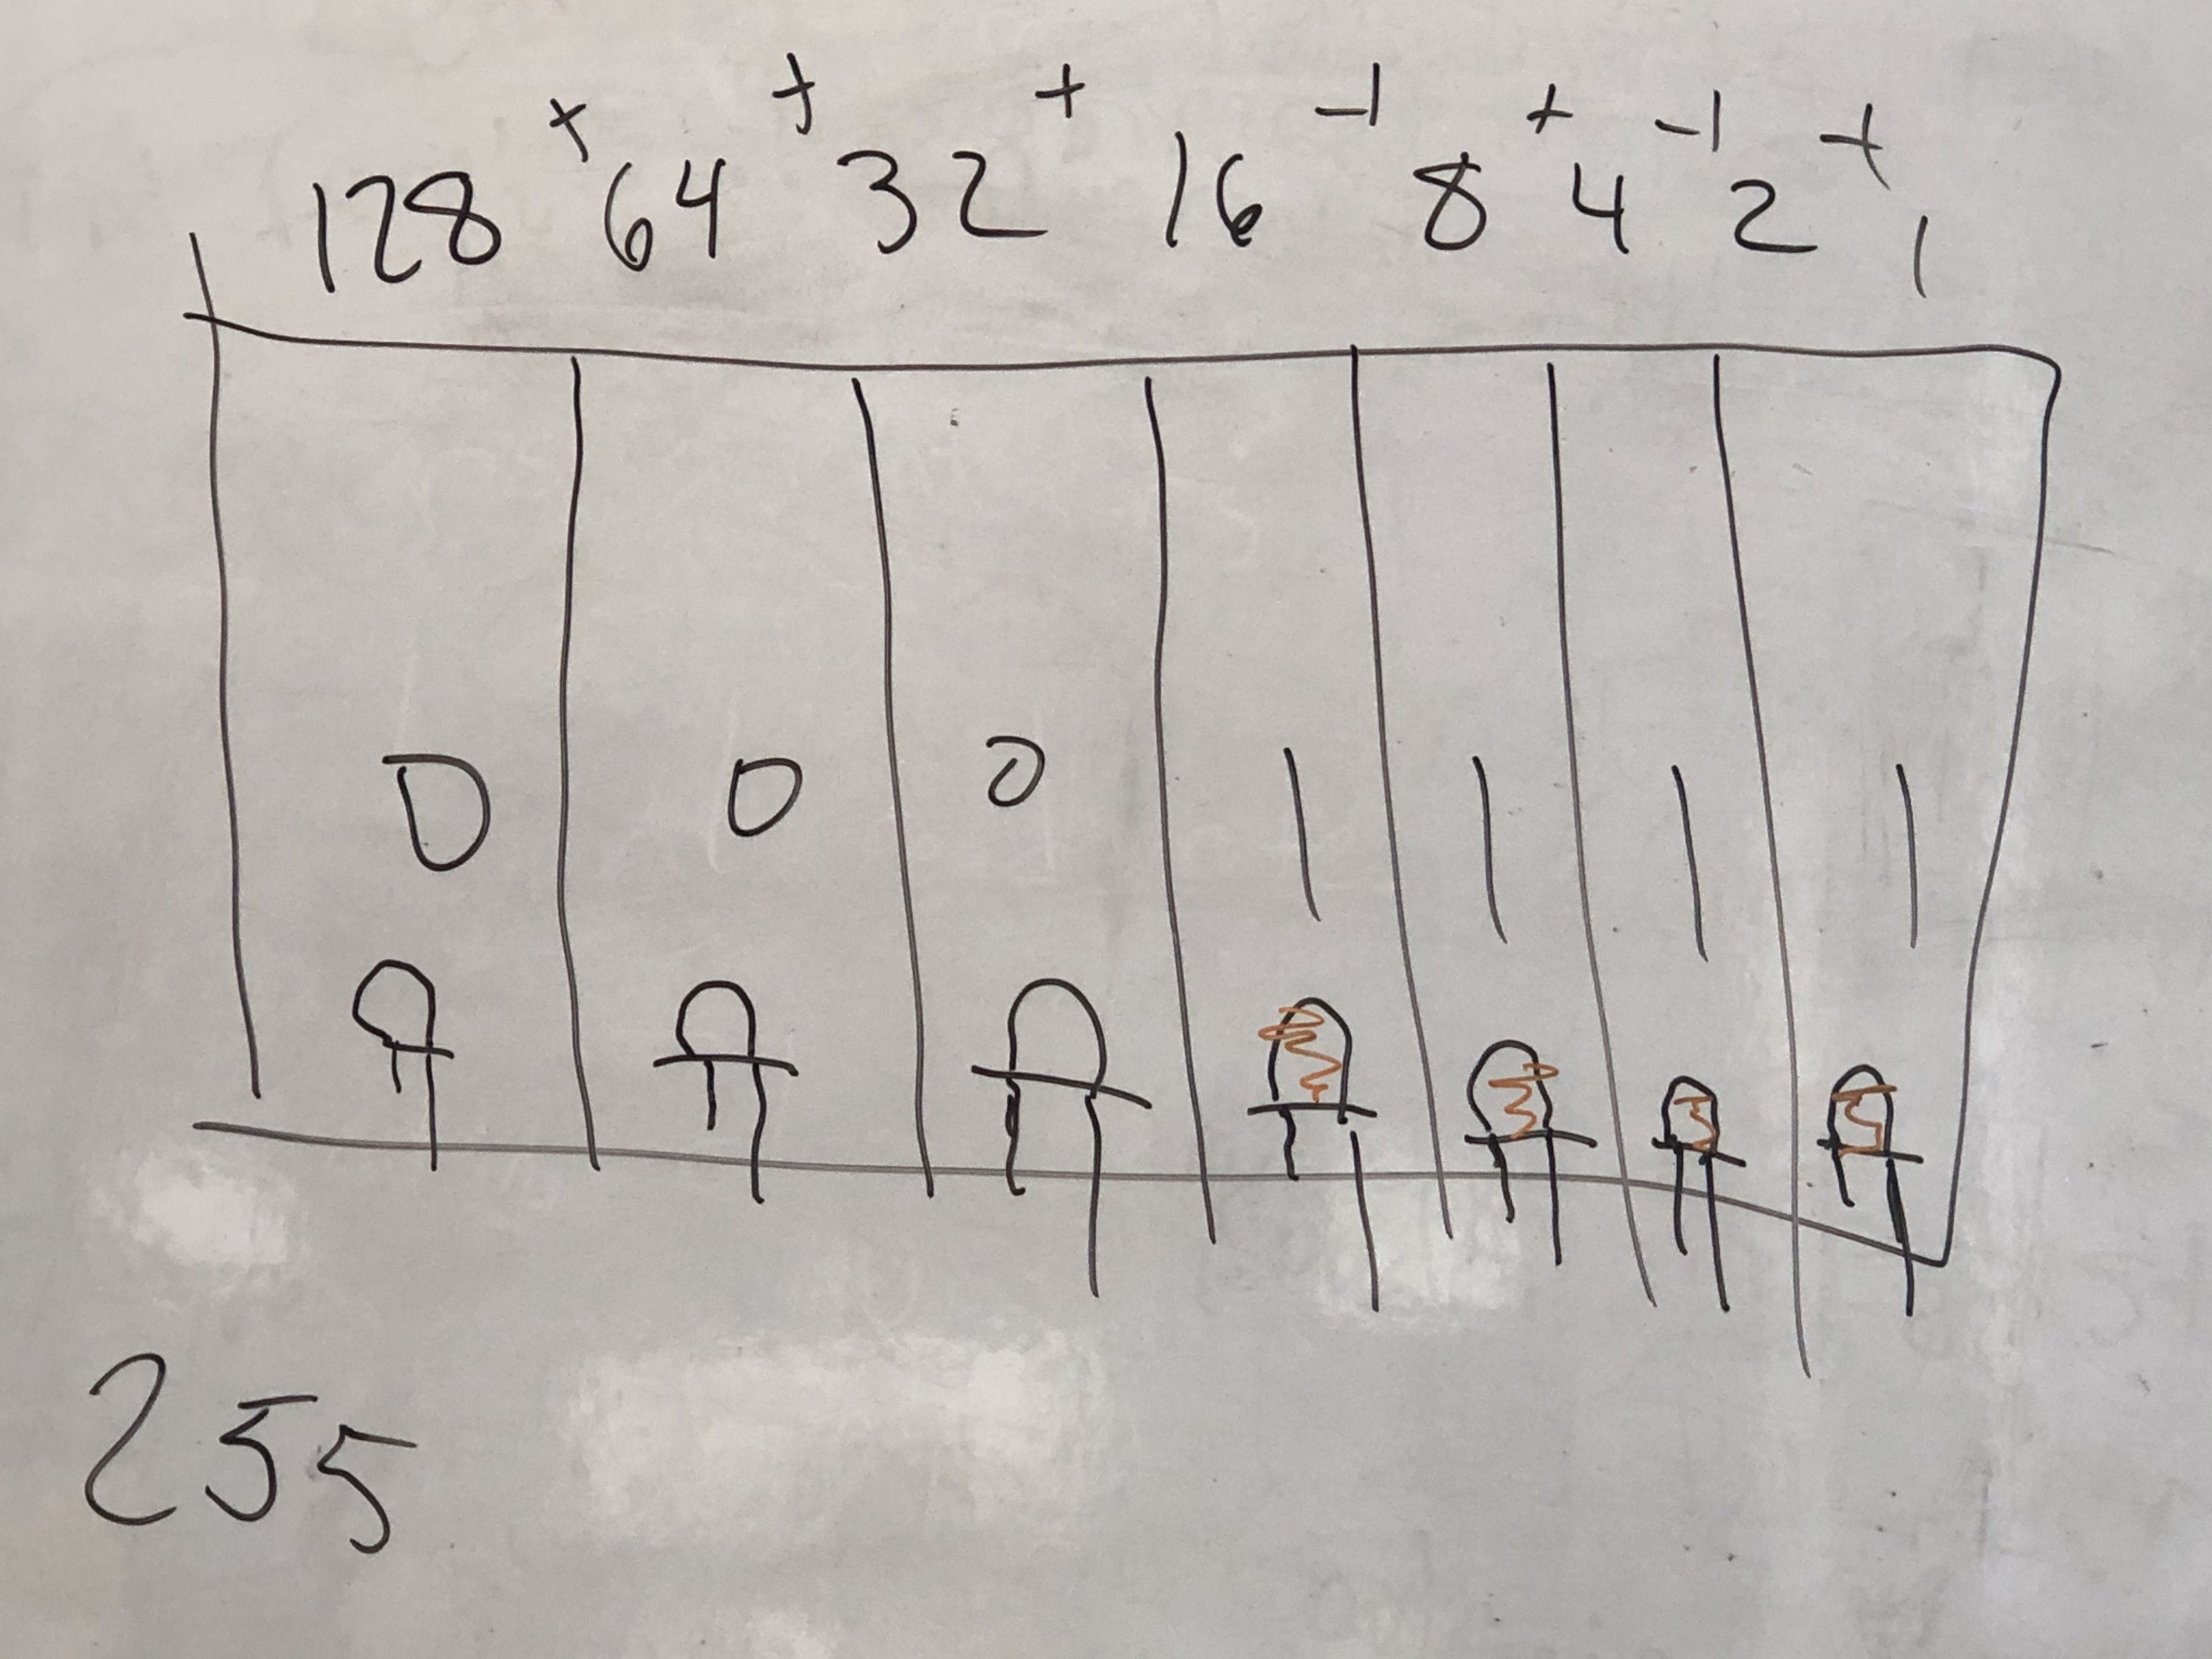 128 + 64 + 32 + 16 + 8 + 4 + 2 + 1
0 0 0 1 1 1 1
255